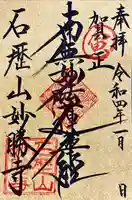 奉拝
令和四年一月 日
賀正
南無妙法蓮華経
石歴山妙勝寺